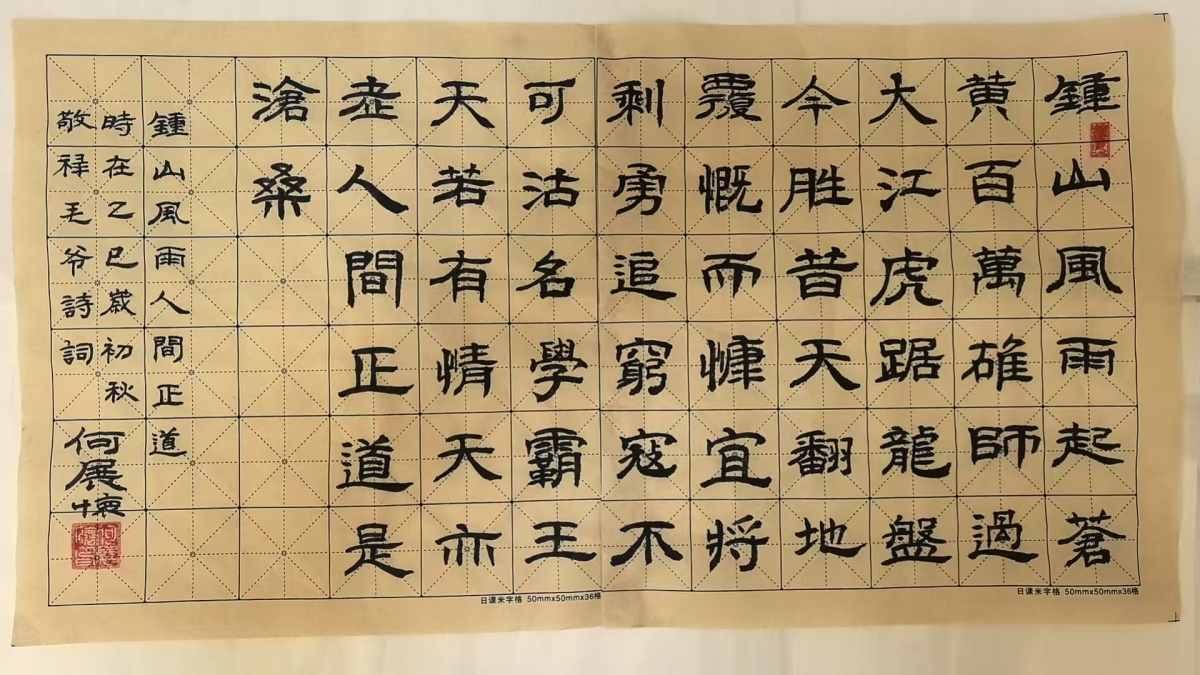 鍾山風雨起蒼
黄百萬雄師過
大江虎踞龍盤
今胜昔天翻地
覆慨而慷宜將
剩勇追窮寇不
可沽名學霸王
天若有情天亦
老人間正道是
滄桑
鍾山風雨人間正道
時在乙巳歲初秋
敬毛爷詩詞
何展懷
日课米字格 50mmx50mmx36格
日课米字格 50mmx50mmx36格